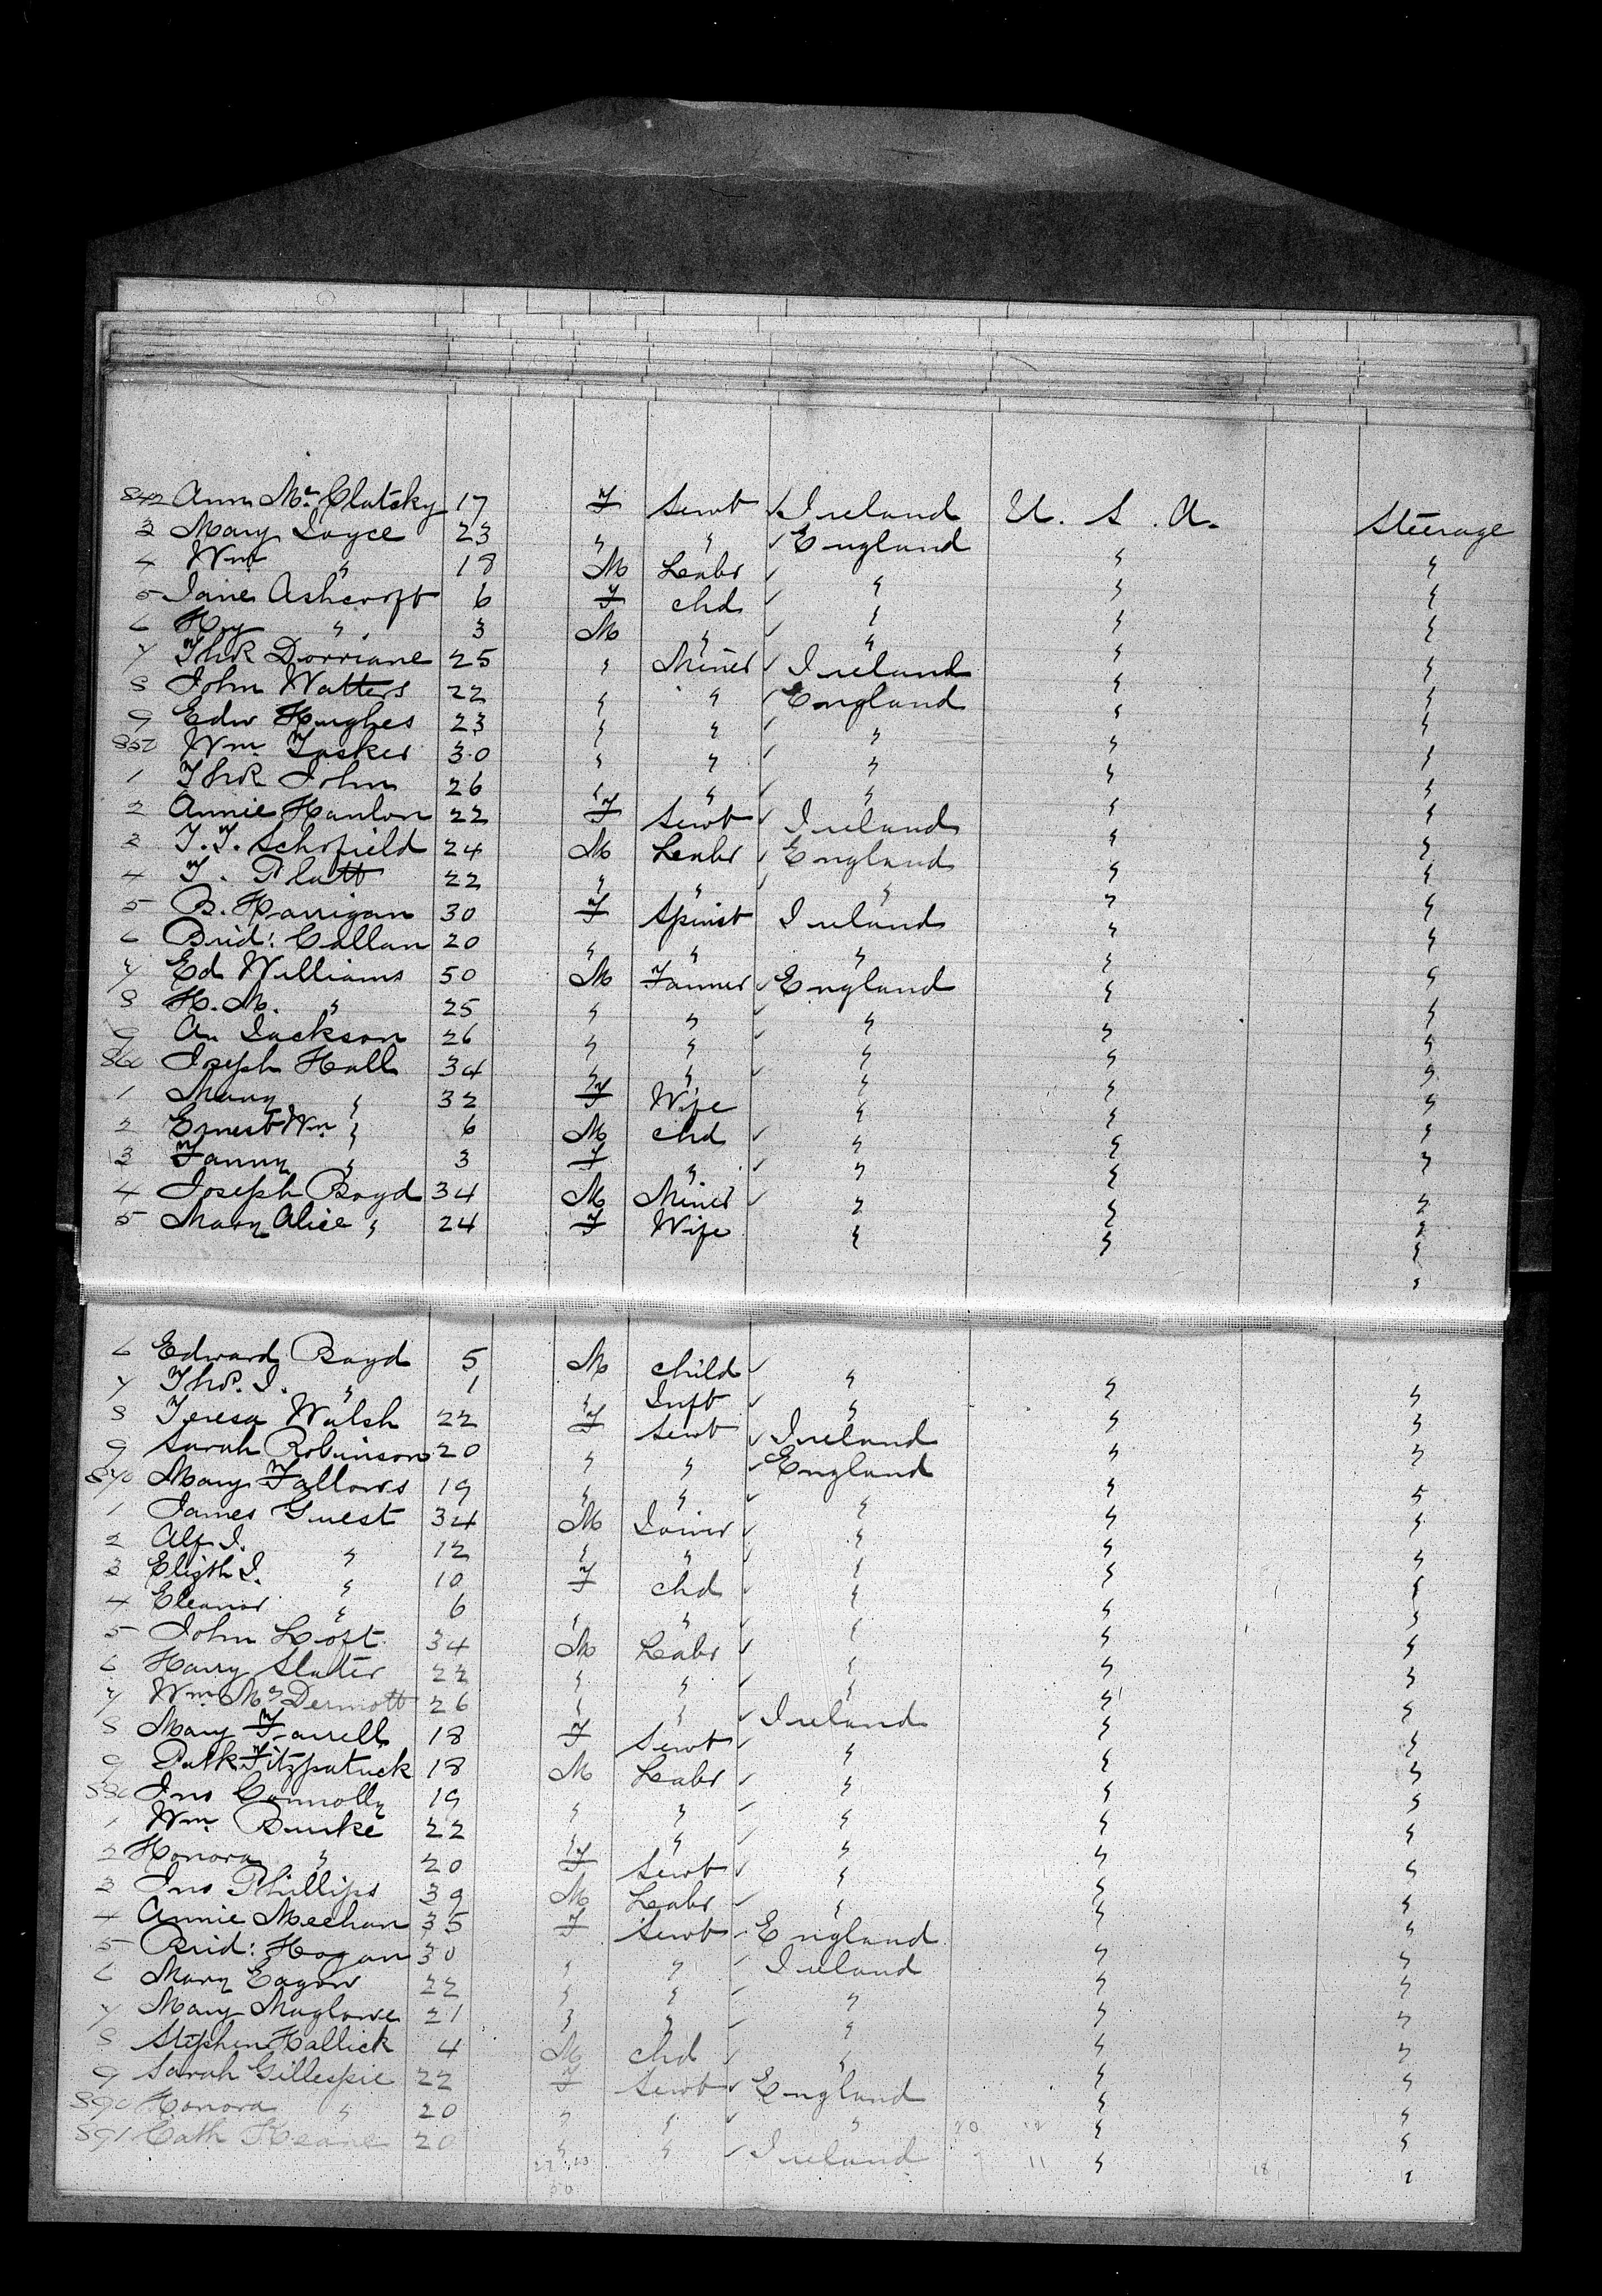 842 Ann Mc Clutsky 17 F Servt ✓ Ireland U. S. A. Steerage
3 Mary Joyce 23 " " ✓ England " "
4 Wm " 18 M Labr ✓ " " "
5 Jane Ashcroft 6 F chd ✓ " " "
6 Hy " 3 M " ✓ " " "
7 Thos Dorriane 25 " Miner ✓ Ireland " "
8 John Watters 22 " " ✓ England " "
9 Edw Hughes 23 " " ✓ " " "
850 Wm Tasker 30 " " ✓ " " "
1 Thos John 26 " " ✓ " " "
2 Annie Hanlon 22 F Servt ✓ Ireland " "
3 T. F. Schofield 24 M Labr ✓ England " "
4 T. Platt 22 " " ✓ " " "
5 B. Harrigan 30 F Spinst Ireland " "
6 Brid: Callan 20 " " " " "
7 Ed Williams 50 M Farmer ✓ England " "
8 H. M. " 25 " " ✓ " " "
9 An Jackson 26 " " ✓ " " "
860 Joseph Hall 34 " " ✓ " " "
1 Mary " 32 F Wife " " "
2 Ernest Wm " 6 M chd ✓ " " "
3 Fanny " 3 F " ✓ " " "
4 Joseph Boyd 34 M Miner ✓ " " "
5 Mary Alice " 24 F Wife " " "
6 Edward Boyd 5 M child ✓ " " "
7 Thos. J. " 1 " Inft ✓ " " "
8 Teresa Walsh 22 F Servt ✓ Ireland " "
9 Sarah Robinson 20 " " ✓ England " "
870 Mary Fallows 19 " " ✓ " " "
1 James Guest 34 M Joiner ✓ " " "
2 Alf J. " 12 " " ✓ " " "
3 Elizth J. " 10 F chd ✓ " " "
4 Eleanor " 6 " " ✓ " " "
5 John Loft 34 M Labr ✓ " " "
6 Harry Slater 22 " " ✓ " " "
7 Wm Mc Dermott 26 " " ✓ Ireland " "
8 Mary Farrell 18 F Servt ✓ " " "
9 Patk Fitzpatrick 18 M Labr ✓ " " "
880 Jno Connolly 19 " " ✓ " " "
1 Wm Burke 22 " " ✓ " " "
2 Honora " 20 F Servt ✓ " " "
3 Jno Phillips 39 M Labr ✓ " " "
4 Annie Meehan 35 F Servt ✓ England " "
5 Brid: Hogan 30 " " ✓ Ireland " "
6 Mary Eagan 22 " " ✓ " " "
7 Mary Maglowe 21 " " ✓ " " "
8 Stephen Hallick 4 M chd ✓ " " "
9 Sarah Gillespie 22 F Servt ✓ England " "
890 Honora " 20 " " ✓ " " "
891 Cath Keane 20 " " ✓ Ireland " "
11 18